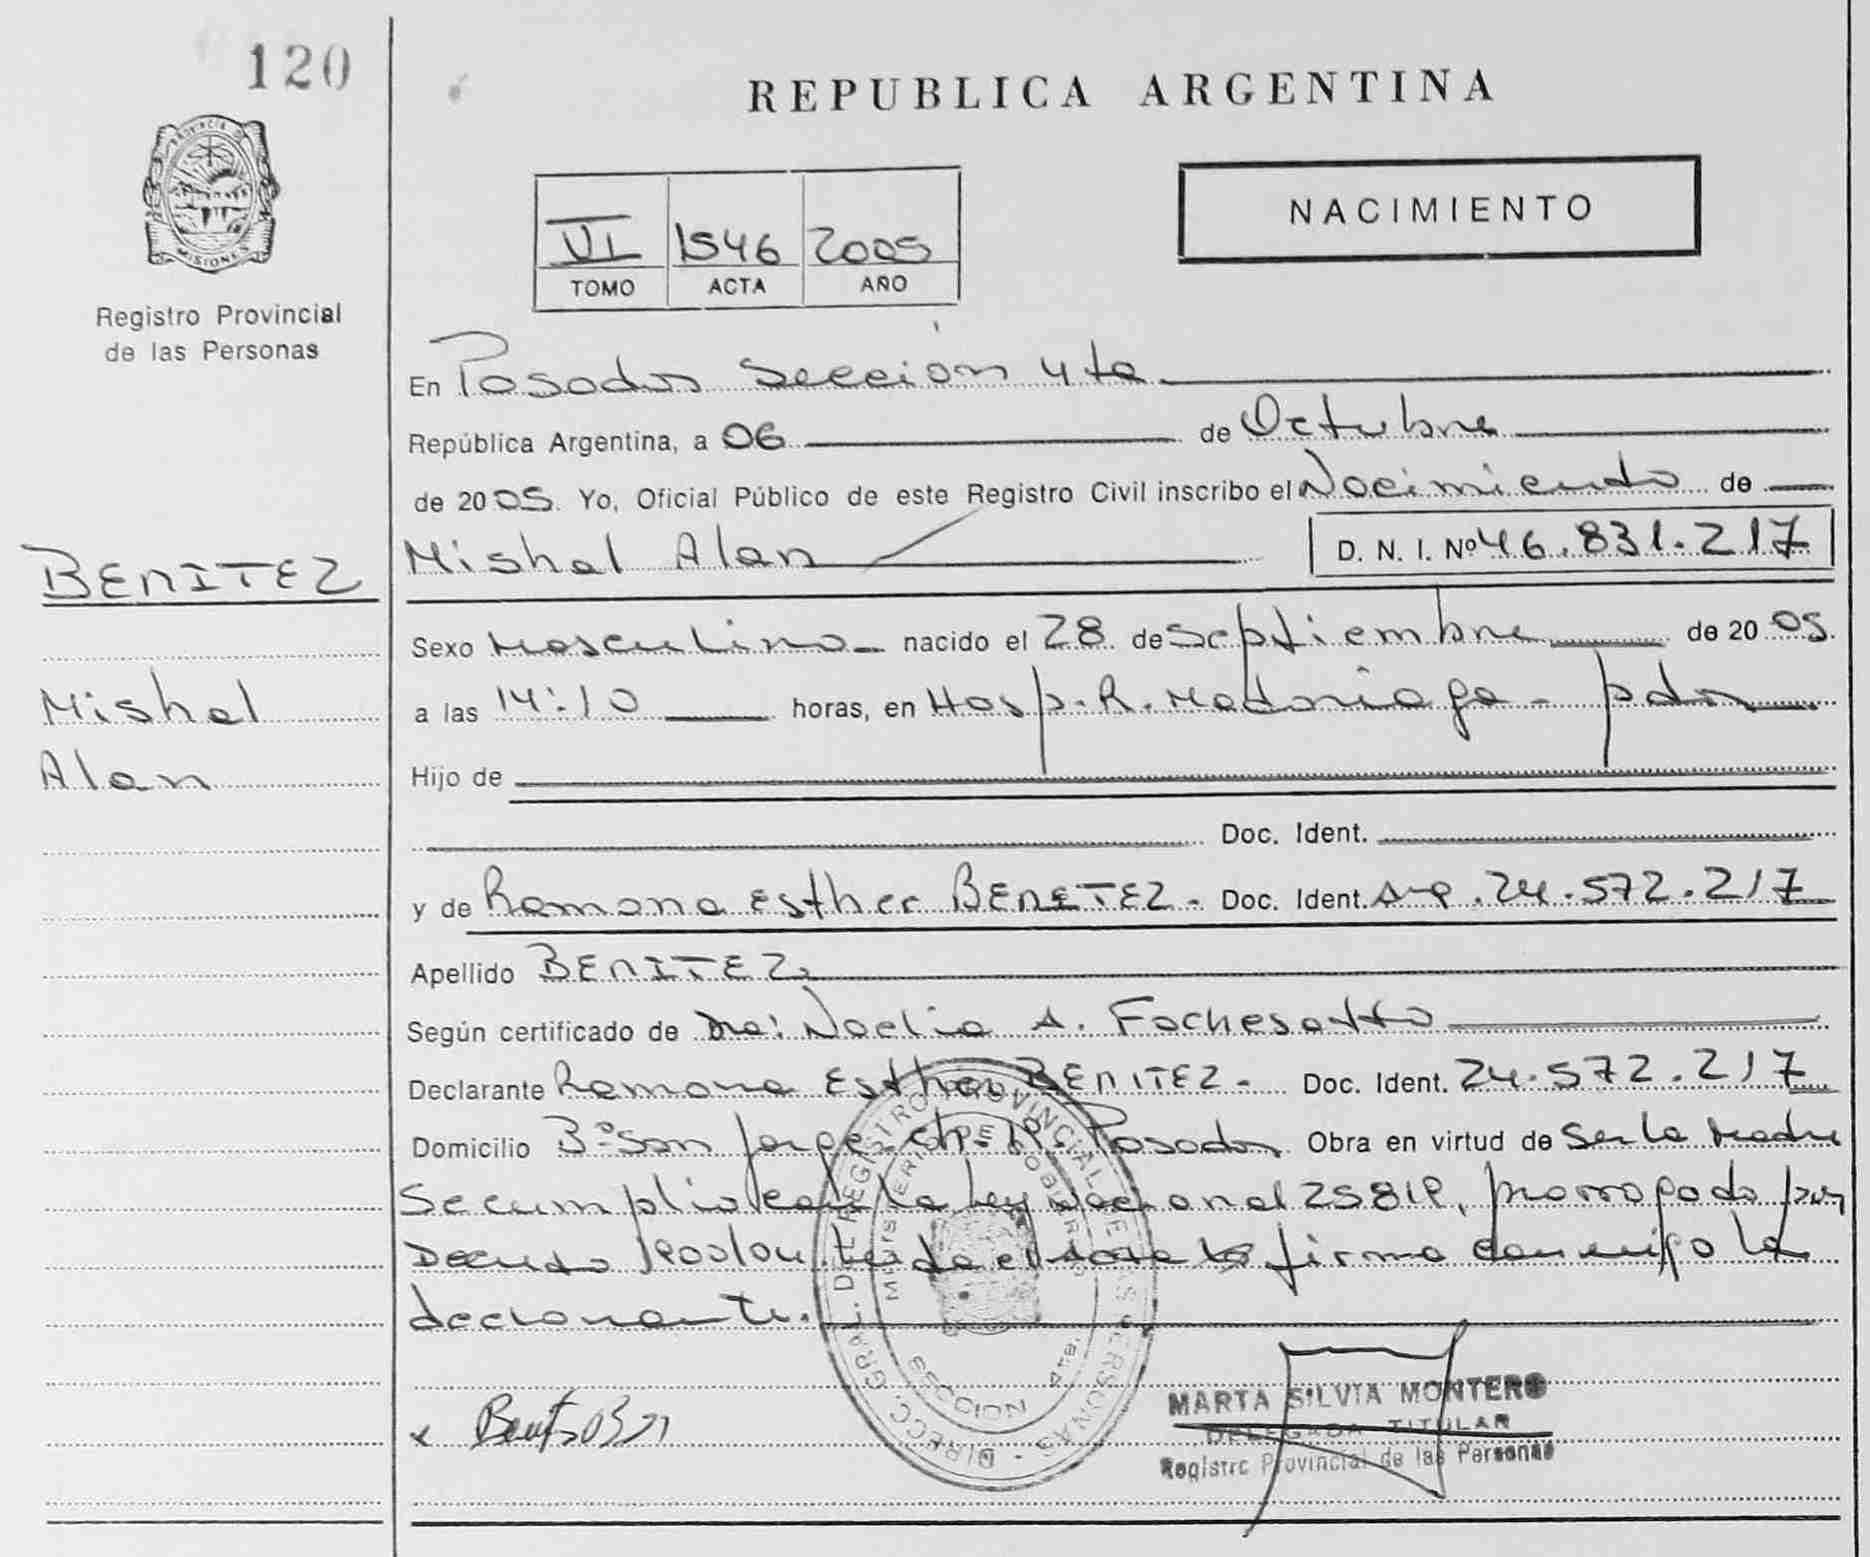 120
REPUBLICA ARGENTINA
PROVINCIA DE
MISIONES
Registro Provincial
de las Personas
NACIMIENTO
VI 1546 2005
TOMO ACTA AÑO
En Posadas Sección 4ta
República Argentina, a 06 de Octubre
de 2005. Yo, Oficial Público de este Registro Civil inscribo el Nacimiento de
BENITEZ
Mishal
Alan
Mishal Alan D. N. I. Nº 46.831.217
Sexo Masculino nacido el 28 de Septiembre de 2005.
a las 14:10 horas, en Hosp. R. Madariaga - pdas
Hijo de
Doc. Ident.
y de Ramona Esther BENETEZ - Doc. Ident. 24.572.217
Apellido BENITEZ
Según certificado de Dra: Noelia A. Fochesatto
Declarante Ramona Esther BENITEZ - Doc. Ident. 24.572.217
Domicilio Bº San Jorge Posadas Obra en virtud de Ser la Madre
Se cumplio con la Ley Nacional 25819, prorrogada por
Decreto leida el acta la firma conmigo la
declarante.
DIRECC. GRAL. DE REGISTRO PROVINCIAL DE LAS PERSONAS
MINISTERIO DE GOBIERNO
MARTA SILVIA MONTERO
DELEGADA TITULAR
Registro Provincial de las Personas